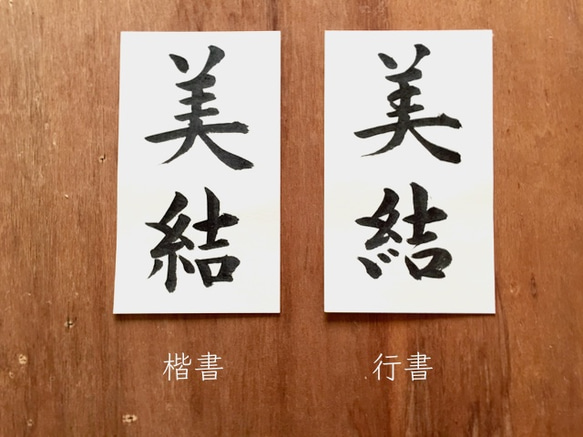 美結
美結
楷書
行書